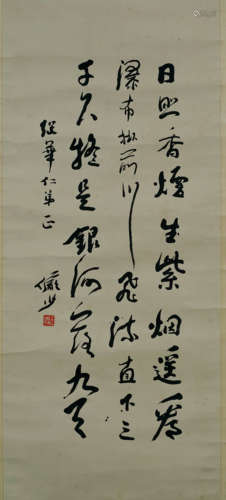 日照香爐生紫烟遥看
瀑布掛前川飛流直下三
千尺疑是銀河落九天
继華仁弟正
儼少